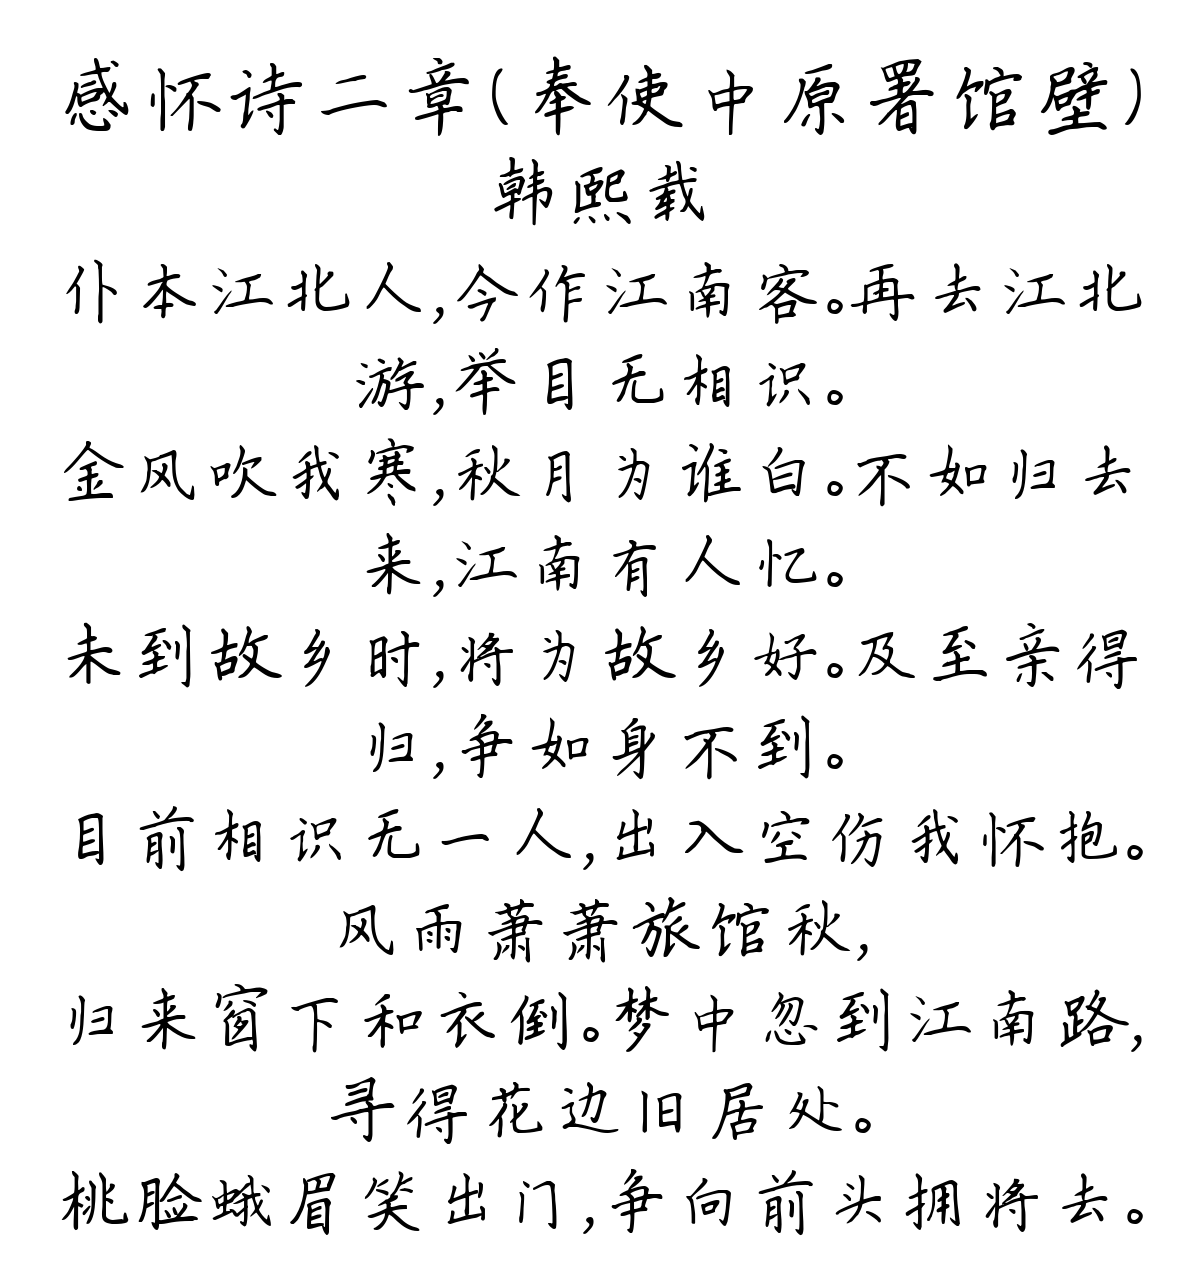 感怀诗二章(奉使中原署馆壁)
韩熙载
仆本江北人,今作江南客。再去江北
游,举目无相识。
金风吹我寒,秋月为谁白。不如归去
来,江南有人忆。
未到故乡时,将为故乡好。及至亲得
归,争如身不到。
目前相识无一人,出入空伤我怀抱。
风雨萧萧旅馆秋,
归来窗下和衣倒。梦中忽到江南路,
寻得花边旧居处。
桃脸蛾眉笑出门,争向前头拥将去。